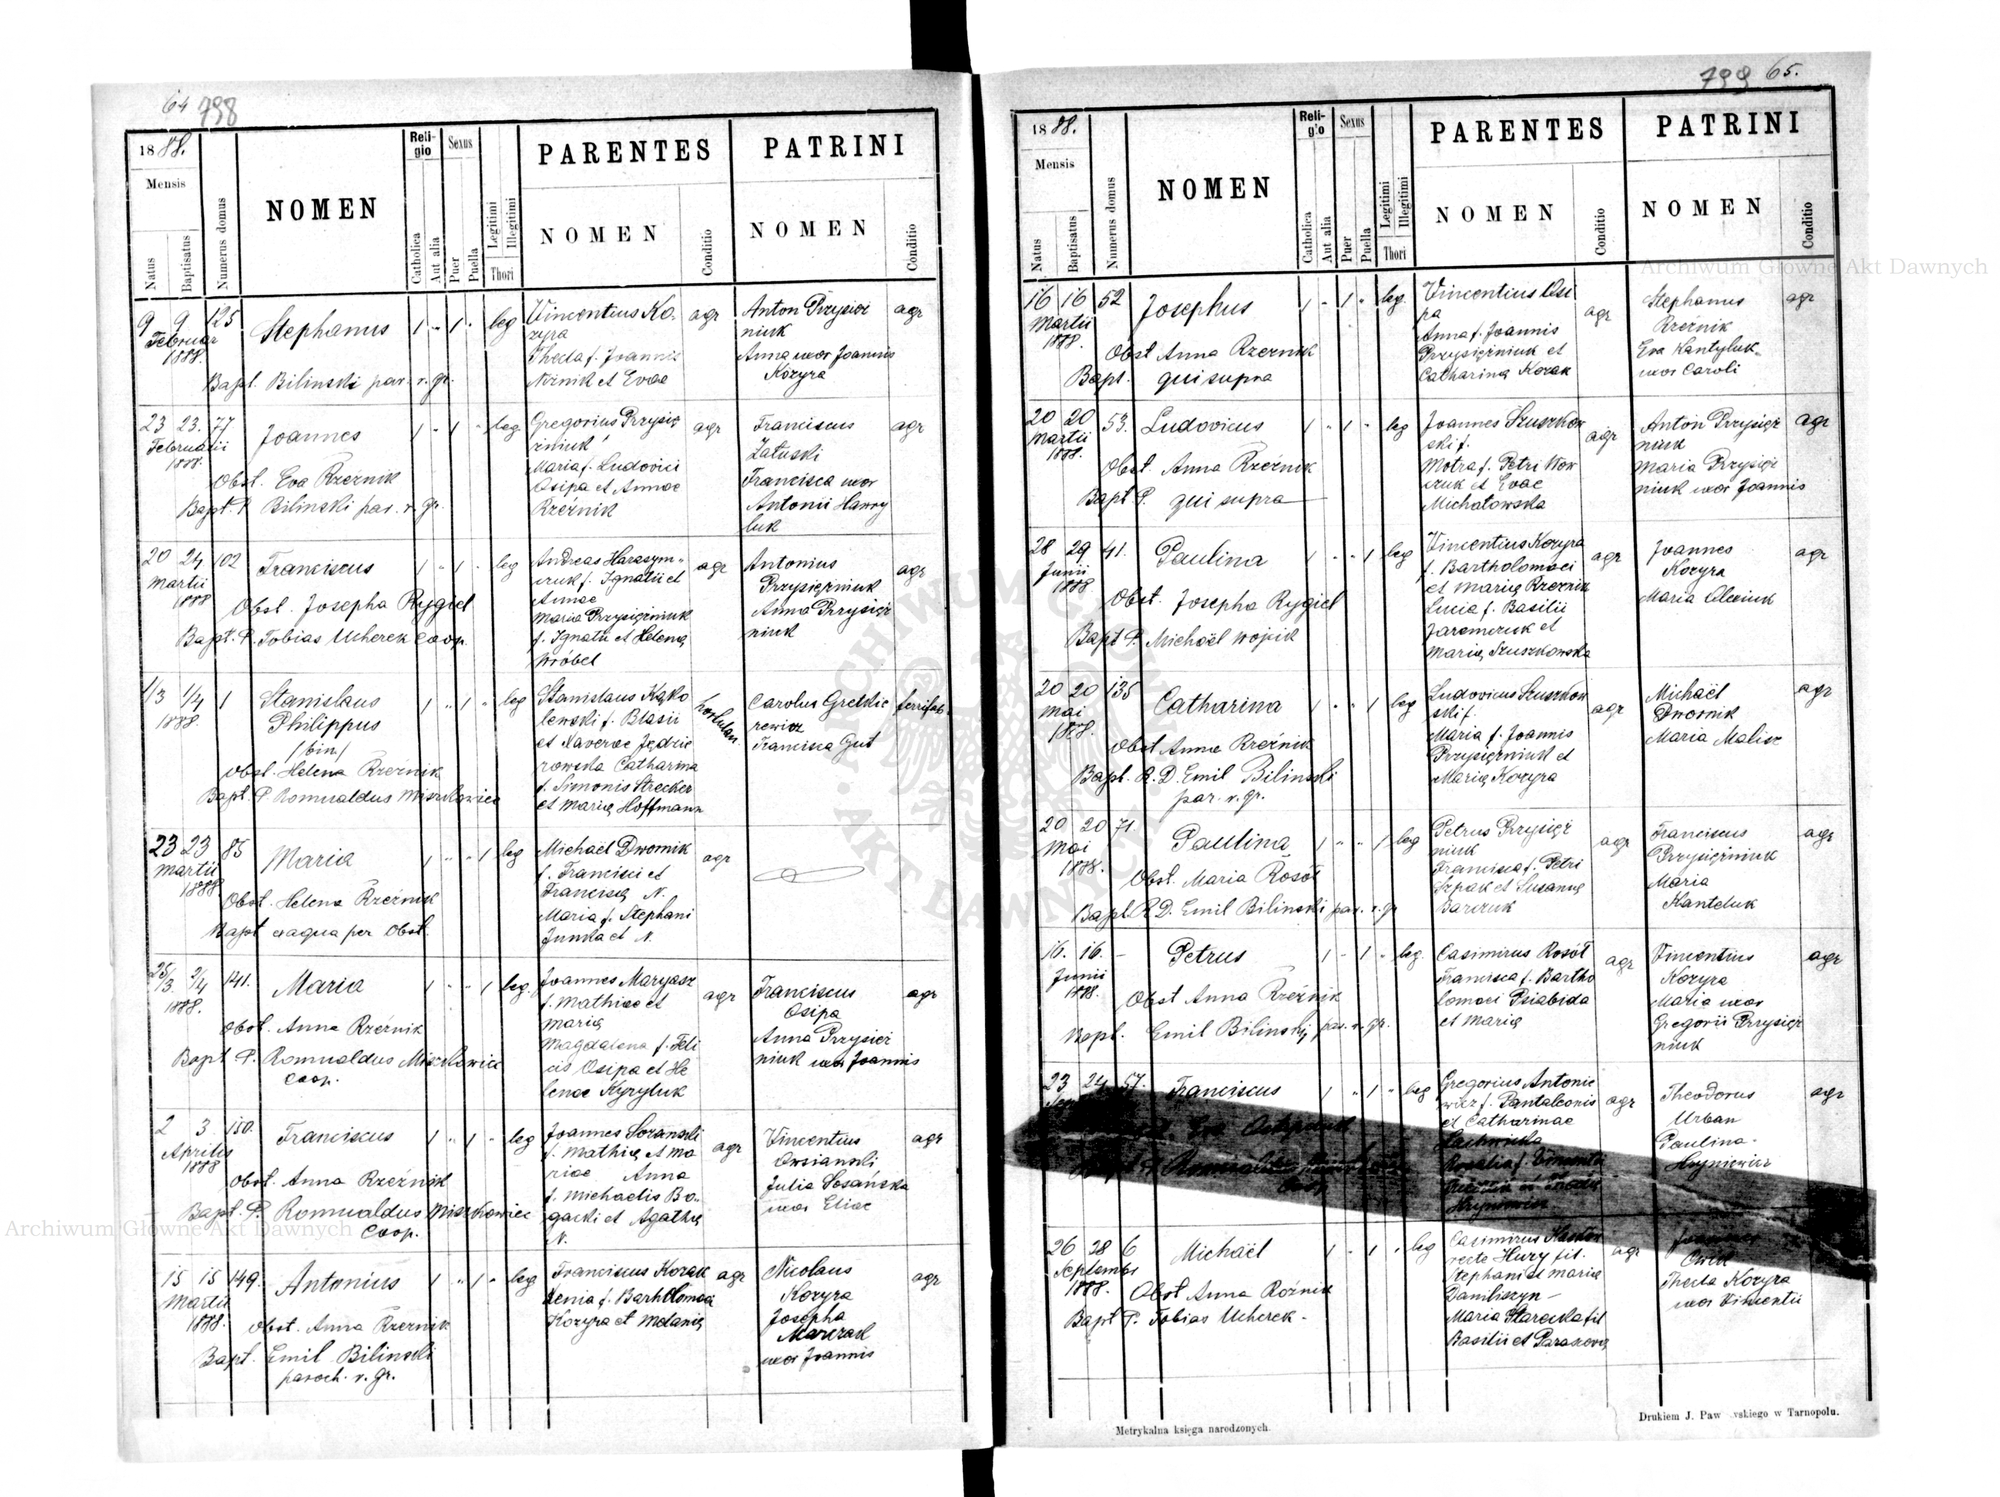 64 798
1888.
Mensis
Natus
Baptisatus
Numerus domus
NOMEN
Religio
Catholica
Aut alia
Sexus
Puer
Puella
Legitimi
Illegitimi
Thori
PARENTES
NOMEN
Conditio
PATRINI
NOMEN
Conditio
9 9 125 Stephanus 1 " 1 " leg
Februar
1888.
Bapt. Bilinski par. r. gr.
Vincentius Ko-
zyra
Thecla f. Joannis
et Evae
agr
Anton Przysięż
niuk
Anna uxor Joannis
Kozyra
agr
23 23. 77 Joannes 1 " 1 " leg
Februarii
1888.
Obst. Eva Rzeźnik
Bapt. P. Bilinski par. r. gr.
Gregorius Przysię
żniuk
Maria f. Ludovici
Osipa et Annae
Rzeźnik
agr
Franciscus
Załuski
Francisca uxor
Antonii Hawry
luk
agr
20 24 102 Franciscus 1 " 1 " leg
Martii
1888
Obst. Josepha Rygiel
Bapt. P. Tobias Ucherek Coop.
Andreas Harasym-
czuk f. Ignatii et
Annae
Maria Przysiężniuk
f. Ignatii et Helena
Wróbel
agr
Antonius
Przysiężniuk
Anna Przysięż
niuk
agr
1/3 1/4 1 Stanislaus 1 " 1 " leg
1888.
Philippus
/bin/
Obst. Helena Rzeźnik
Bapt. P. Romualdus Miszkowicz
Stanislaus Kąko
lewski f. Blasii
et Xaverae Jędrze
rowska Catharina
f. Simonis Strecker
et Maria Hoffmann
Carolus Gretkie
rewicz
Francisca Gut
ferrifab.
23 23 85 Maria 1 " " 1 leg
Martii
1888.
Obst. Helena Rzeźnik
Bapt ex aqua per Obst.
Michael Dwornik
f. Francisci et
Francisca N.
Maria f. Stephani
et N.
agr
25/3. 2/4 141. Maria 1 " " 1 leg.
1888.
Obst. Anna Rzeźnik
Bapt P. Romualdus Miszkowicz
Coop.
Joannes Maryasz
f. Mathiae et
Maria
Magdalena f. Feli
cis Osipa et He
lenae Kyryluk
agr
Franciscus
Osipa
Anna Przysięż
niuk uxor Joannis
agr
2 3. 150. Franciscus 1 " 1 " leg
Aprilis
1888
Obst. Anna Rzeźnik
Bapt. P. Romualdus Miszkowicz
Coop.
Joannes
f. Mathia et Ma
riae Anna
f. Michaelis Bo-
gacki et Agatha
N.
agr
Vincentius
Owsianski
Julia
uxor Eliae
agr
15 15 149. Antonius 1 " 1 " leg
Martii
1888.
Obst. Anna Rzeźnik
Bapt. Emil Bilinski
paroch. r. gr.
Franciscus Kozak
Xenia f. Bartholomaei
Kozyra et Melania
agr
Nicolaus
Kozyra
Josepha
Marczak
uxor Joannis
agr
799 65.
1888.
Mensis
Natus
Baptisatus
Numerus domus
NOMEN
Religio
Catholica
Aut alia
Sexus
Puer
Puella
Legitimi
Illegitimi
Thori
PARENTES
NOMEN
Conditio
PATRINI
NOMEN
Conditio
16 16 52 Josephus 1 " 1 " leg.
Martii
1888.
Obst Anna Rzeznik
Bapt. qui supra
Vincentius Osi
pa
Anna f. Joannis
Przysiężniuk et
Catharina Kozak
agr
Stephanus
Rzeźnik
Eva Kantyluk
uxor Caroli
agr
20 20 53. Ludovicus 1 " 1 " leg
Martii
1888.
Obst. Anna Rzeźnik
Bapt P. qui supra
Joannes Szuszkow
ski f.
Motra f. Petri Wow
czuk et Evae
Michałowska
agr
Anton Przysięż
niuk
Maria Przysięż
niuk uxor Joannis
agr
28 29 41. Paulina 1 " " 1 leg
Junii
1888
Obst. Josepha Rygiel
Bapt P. Michaël Wojcik
Vincentius Kozyra
f. Bartholomaei
et Maria Rzeznik
Lucia f. Basilii
Jaremczuk et
Maria Szuszkowska
agr
Joannes
Kozyra
Maria Olexiuk
agr
20 20 135 Catharina 1 " " 1 leg
Mai
1888.
Obst Anna Rzeźnik
Bapt. R. D. Emil Bilinski
par. r. gr.
Ludovicus Szuszkow
ski f.
Maria f. Joannis
Przysiężniuk et
Maria Kozyra
agr
Michaël
Dwornik
Maria Malisz
agr
20 20 71. Paulina 1 " " 1 leg
Mai
1888.
Obst. Maria Rosół
Bapt. R. D. Emil Bilinski par. r. gr
Petrus Przysięż
niuk
Francisca f. Petri
Szpak et Susanna
Barczuk
agr
Franciscus
Przysiężniuk
Maria
Kanteluk
agr
16. 16. - Petrus 1 " 1 " leg.
Junii
1888.
Obst Anna Rzeźnik
Bapt. Emil Bilinski par. r. gr.
Casimirus Rosół
Francisca f. Bartho
lomaei Psiabida
et Maria
agr
Vincentius
Kozyra
Maria uxor
Gregorii Przysięż
niuk
agr
23 24 57. Franciscus 1 " 1 " leg
Eva
Bapt P. Romualdus
Gregorius Antonie
wicz f. Pantaleonis
et Catharinae
Rosalia f.
agr
Theodorus
Urban
Paulina
Hryniewicz
agr
26 28 6 Michaël 1 " 1 " leg
Septembr
1888.
Obst Anna Róźnik
Bapt P. Tobias Ucherek -
Casimirus
recte Hury fil.
Stephani et Maria
Daniliszyn -
Maria fil
Basilii et Paraxova
agr
Thecla Kozyra
uxor Vincentii
Metrykalna księga narodzonych.
Drukiem J. Paw wskiego w Tarnopolu.
Archiwum Główne Akt Dawnych
Archiwum Główne Akt Dawnych
ARCHIWUM GŁÓWNE AKT DAWNYCH